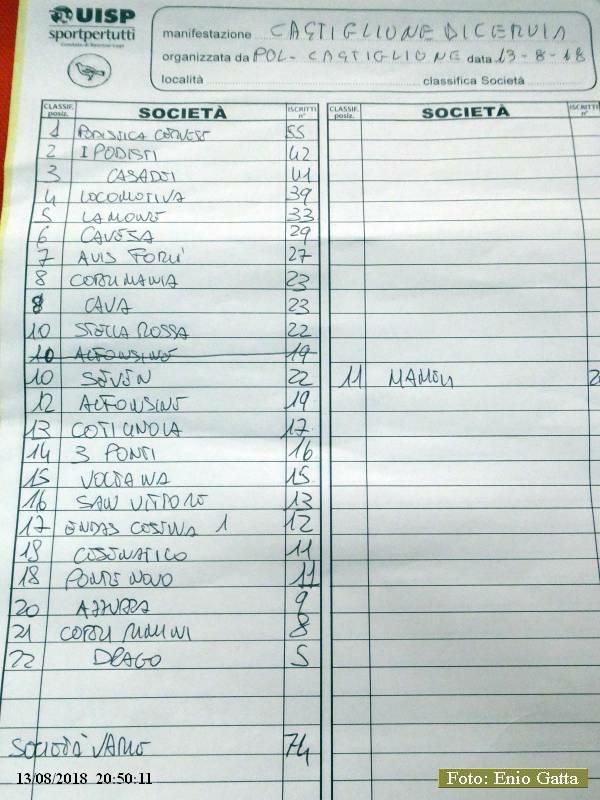 UISP
sportpertutti
manifestazione CASTIGLIONE DI CERVIA
organizzata da POL- CASTIGLIONE data 13-8-18
località classifica Società
CLASSIF. posiz. SOCIETÀ ISCRITTI n° CLASSIF. posiz. SOCIETÀ ISCRITTI n°
1 PODISTICA CERVESE 55
2 I PODISTI 42
3 CASADEI 41
4 LOCOMOTIVA 39
5 LAMONE 33
6 CAVEJA 29
7 AVIS FORLI' 27
8 CORRI MANIA 23
8 CAVA 23
10 STELLA ROSSA 22
10 ALFONSINE 19
10 SEVEN 22 11 MAMELI
12 ALFONSINE 19
13 COTIGNOLA 17
14 3 PONTI 16
15 VOLTANA 15
16 SAN VITTORE 13
17 ENDAS CESENA 1 12
18 CESENATICO 11
18 PONTE NOVO 11
20 AZZURRA 9
21 CORRI RIMINI 8
22 DRAGO 5
SOCIETÀ VARIE 74
13/08/2018 20:50:11
Foto: Enio Gatta